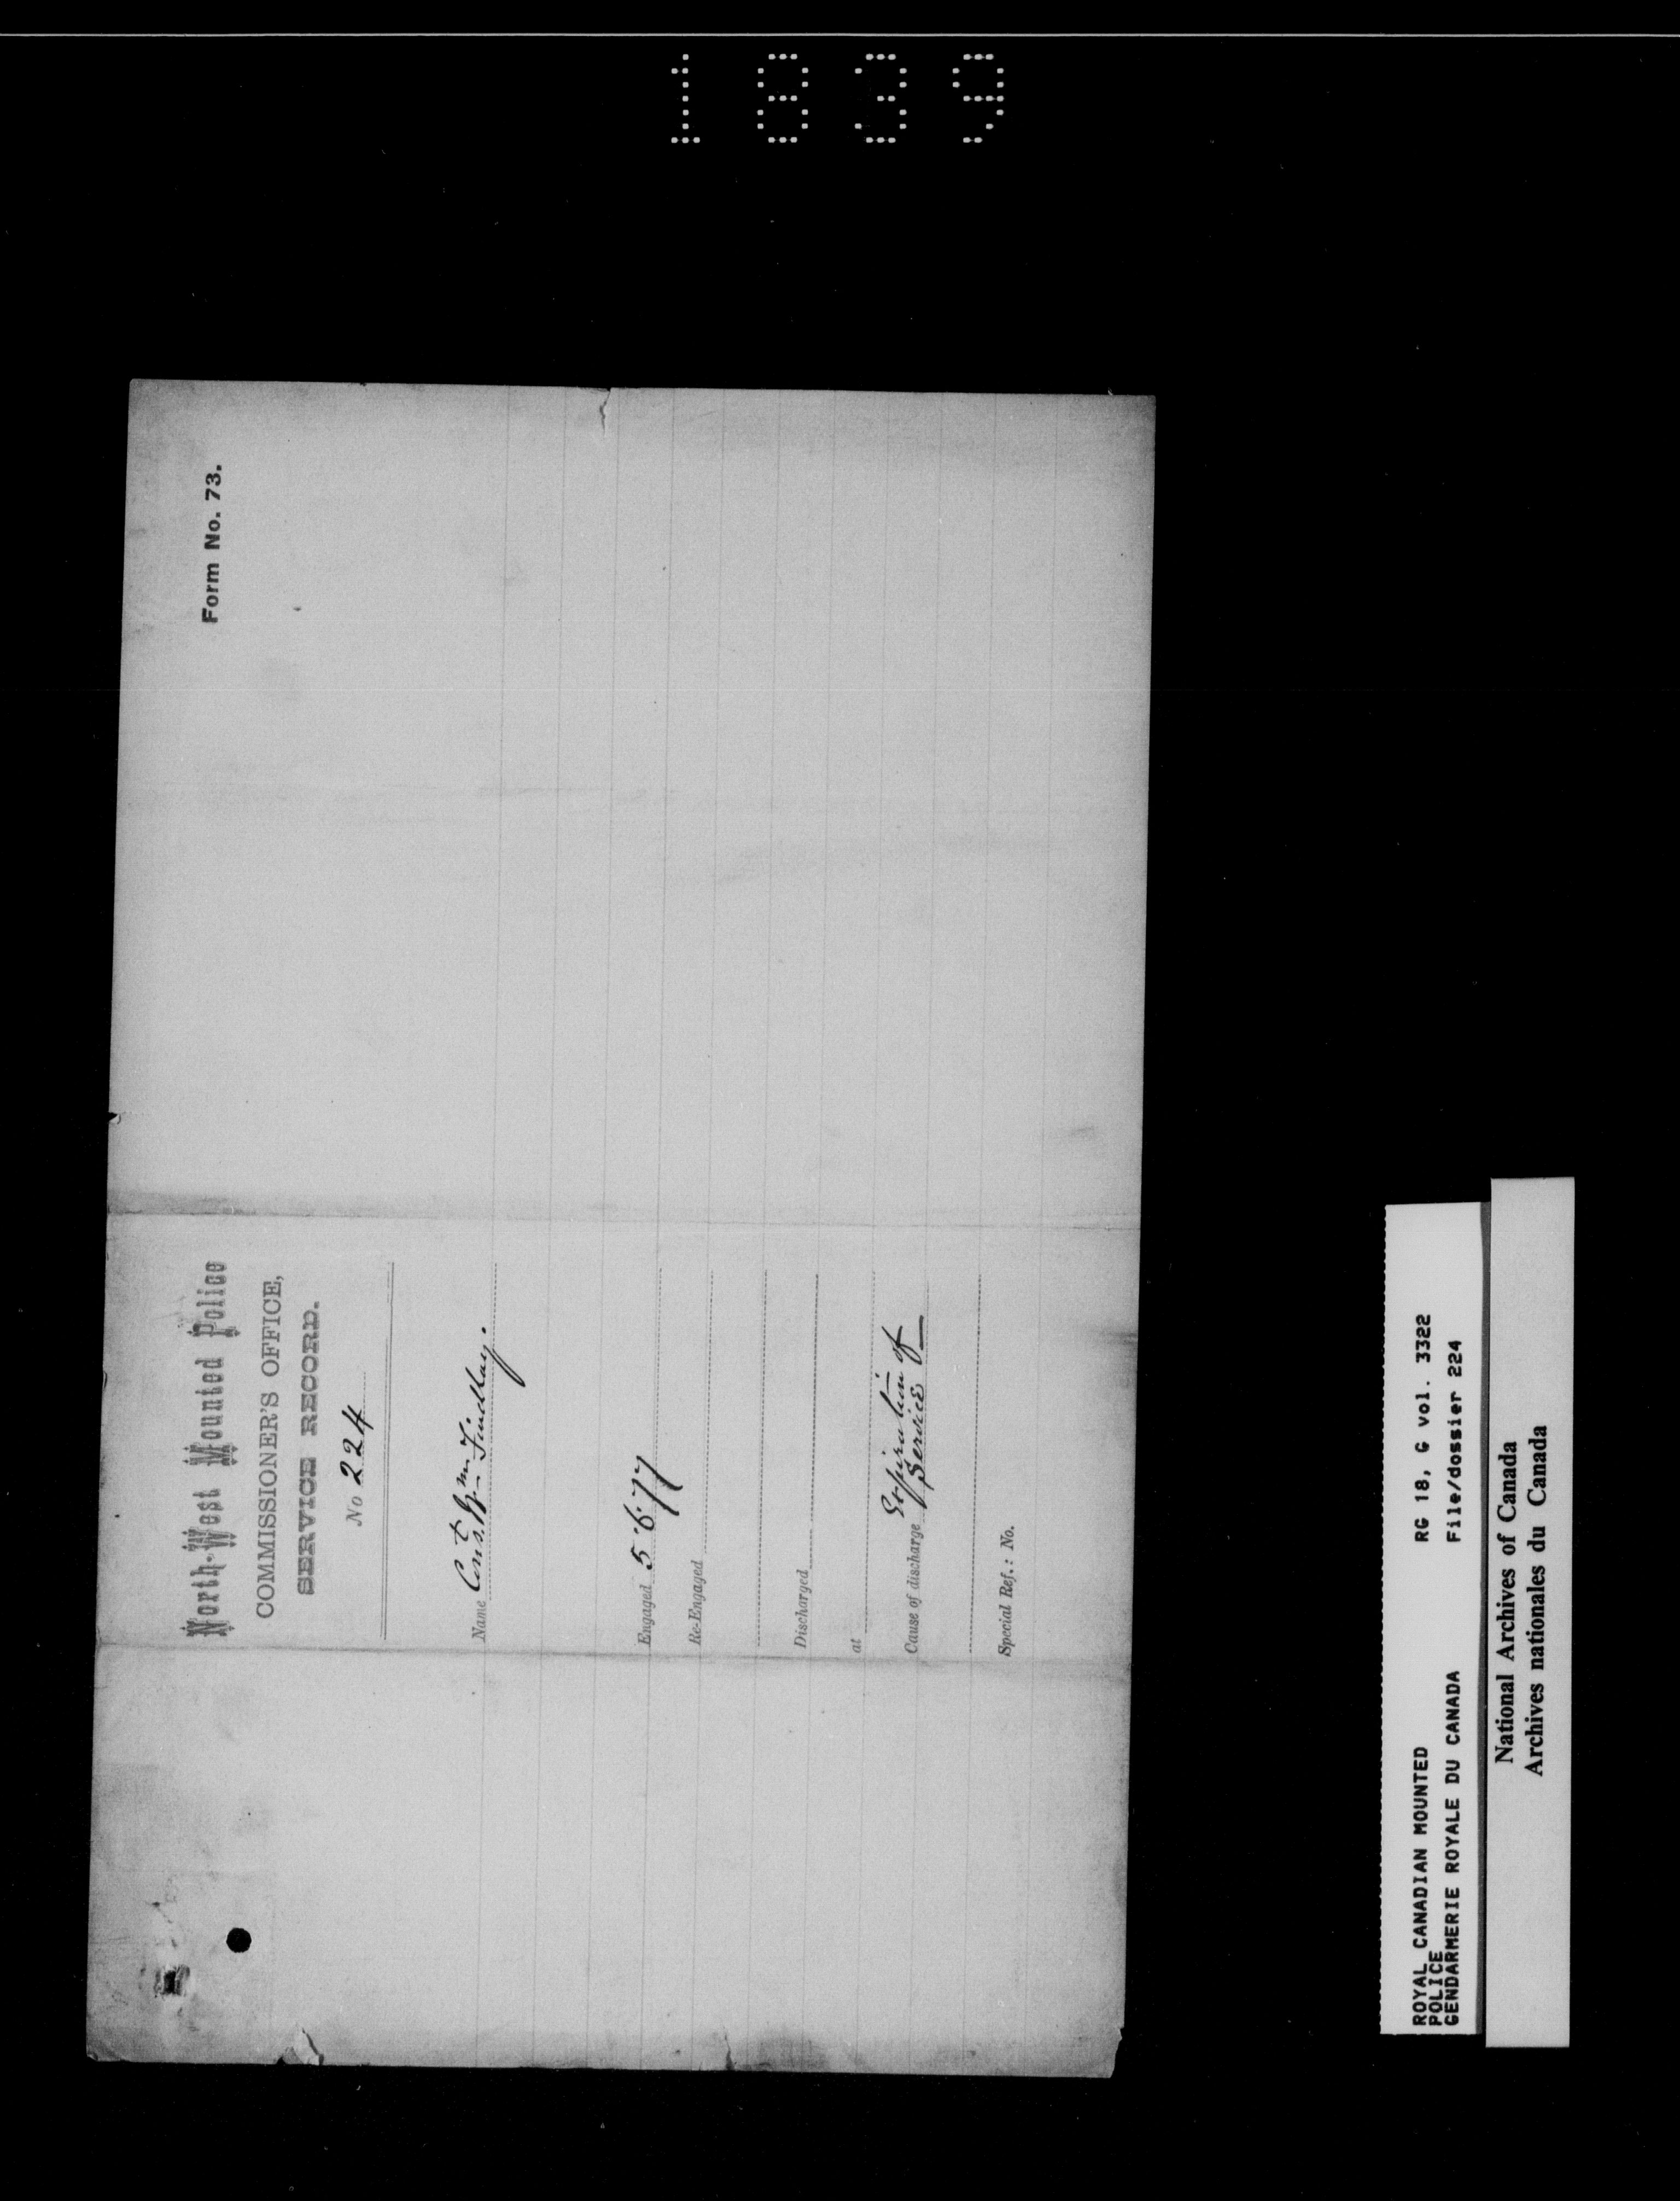 1839
Form No. 73.
North-West Mounted Police
COMMISSIONER'S OFFICE,
SERVICE RECORD.
No 224
Name Const Findlay.
Engaged 5.6.77
Re-Engaged
Discharged
at
Cause of discharge Expiration of
Service
Special Ref.: No.
ROYAL CANADIAN MOUNTED
POLICE
GENDARMERIE ROYALE DU CANADA
RG 18, G vol. 3322
File/dossier 224
National Archives of Canada
Archives nationales du Canada